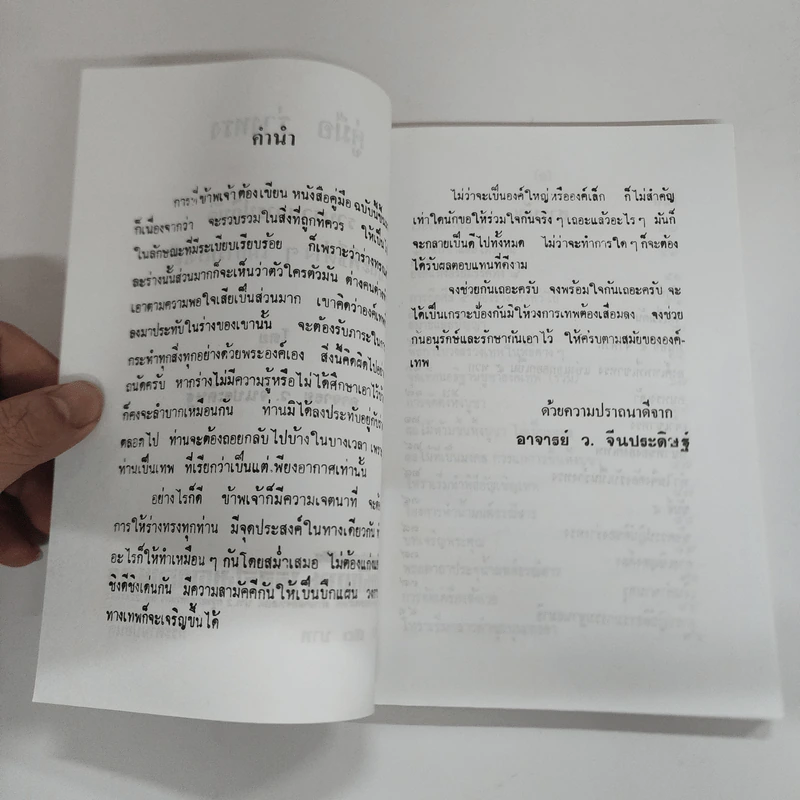 คำนำ
การที่ข้าพเจ้าต้องเขียน หนังสือคู่มือ ฉบับนี้ขึ้น
ก็เนื่องจากว่า จะรวบรวมในสิ่งที่ถูกที่ควร ให้เป็นไป
ในลักษณะที่มีระเบียบเรียบร้อย ก็เพราะว่าร่างทรง
ละร่างนั้นส่วนมากก็จะเห็นว่าตัวใครตัวมัน ต่างคนต่าง
เอาตามความพอใจเสียเป็นส่วนมาก เขาคิดว่าองค์เทพ
ลงมาประทับในร่างของเขานั้น จะต้องรับภาระใน
กระทำทุกสิ่งทุกอย่างด้วยพระองค์เอง สิ่งนี้คิดผิดไป
ถนัดครับ หากร่างไม่มีความรู้หรือไม่ได้ศึกษาเอาไว้
ก็คงจะลำบากเหมือนกัน ท่านมิได้ลงประทับอยู่กับร่าง
ตลอดไป ท่านจะต้องถอยกลับไปบ้างในบางเวลา เพราะ
ท่านเป็นเทพ ที่เรียกว่าเป็นแต่เพียงอากาศเท่านั้น
อย่างไรก็ดี ข้าพเจ้าก็มีความเจตนาที่ จะ
การให้ร่างทรงทุกท่าน มีจุดประสงค์ในทางเดียวกัน
อะไรก็ให้ทำเหมือน ๆ กันโดยสม่ำเสมอ ไม่ต้อง
ชิงดีชิงเด่นกัน มีความสามัคคีกันให้เป็นปึกแผ่น วงการ
ทางเทพก็จะเจริญขึ้นได้
ไม่ว่าจะเป็นองค์ใหญ่หรือองค์เล็ก ก็ไม่สำคัญ
เท่าใดนักขอให้ร่วมใจกันจริง ๆ เถอะแล้วอะไร ๆ มันก็
จะกลายเป็นดีไปทั้งหมด ไม่ว่าจะทำการใด ๆ ก็จะต้อง
ได้รับผลตอบแทนที่ดีงาม
จงช่วยกันเถอะครับ จงพร้อมใจกันเถอะครับ จะ
ได้เป็นเกราะป้องกันมิให้วงการเทพต้องเสื่อมลง จงช่วย
กันอนุรักษ์และรักษากันเอาไว้ ให้ครบตามสมัยขององค์-
เทพ
ด้วยความปรารถนาดีจาก
อาจารย์ ว. จีนประดิษฐ์